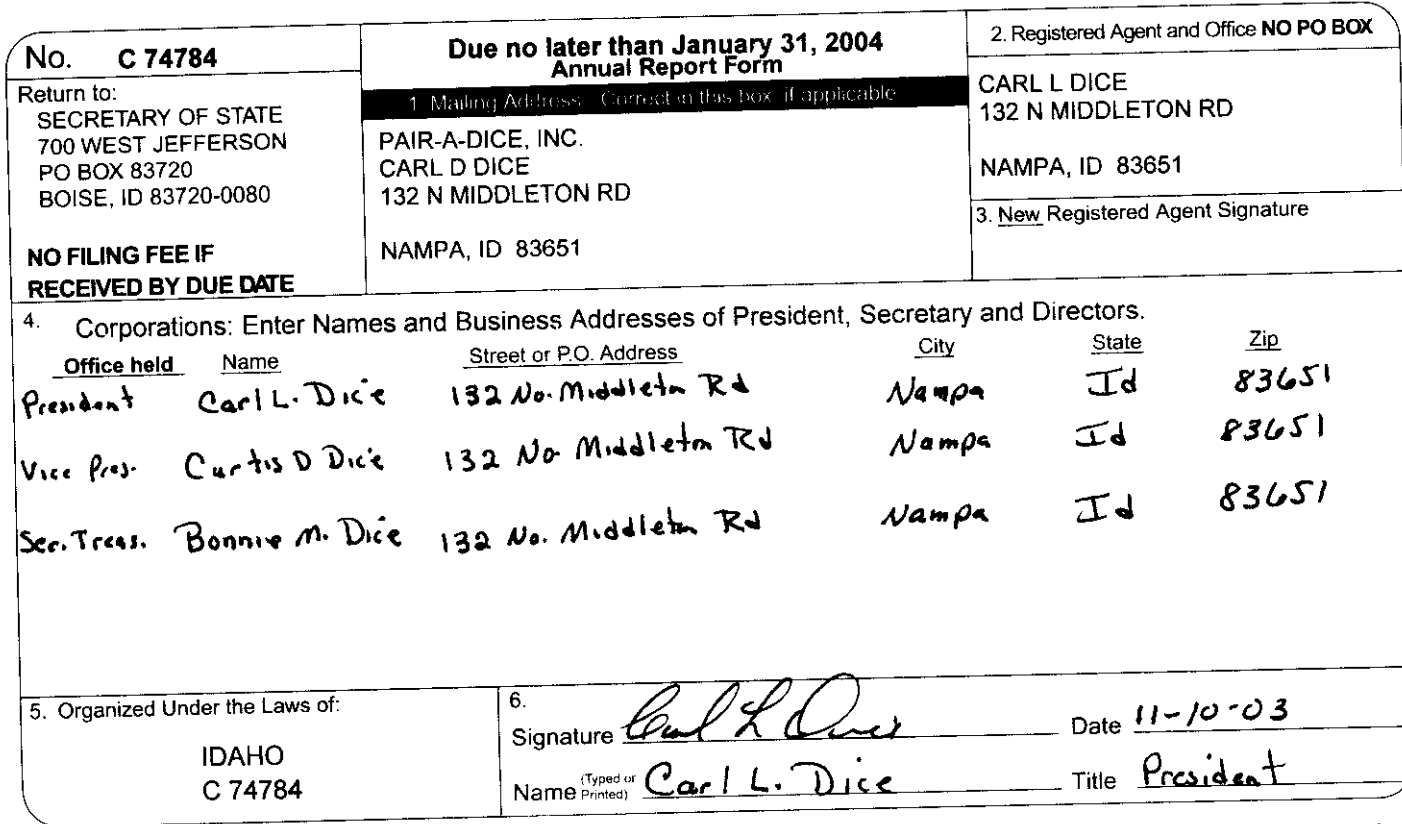 No. C 74784
Return to:
SECRETARY OF STATE
700 WEST JEFFERSON
PO BOX 83720
BOISE, ID 83720-0080
NO FILING FEE IF
RECEIVED BY DUE DATE
Due no later than January 31, 2004
Annual Report Form
1. Mailing Address: Correct in this box, if applicable
PAIR-A-DICE, INC.
CARL D DICE
132 N MIDDLETON RD
NAMPA, ID 83651
2. Registered Agent and Office NO PO BOX
CARL L DICE
132 N MIDDLETON RD
NAMPA, ID 83651
3. New Registered Agent Signature
4. Corporations: Enter Names and Business Addresses of President, Secretary and Directors.
Office held Name Street or P.O. Address City State Zip
President Carl L. Dice 132 No. Middleton Rd Nampa Id 83651
Vice Pres. Curtis D Dice 132 No Middleton Rd Nampa Id 83651
Sec. Treas. Bonnie M. Dice 132 No. Middleton Rd Nampa Id 83651
5. Organized Under the Laws of:
IDAHO
C 74784
6.
Signature Carl L Dice Date 11-10-03
Name (Typed or Printed) Carl L. Dice Title President